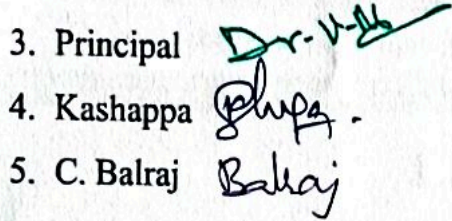 3. Principal
4. Kashappa
5. C. Balraj Balraj